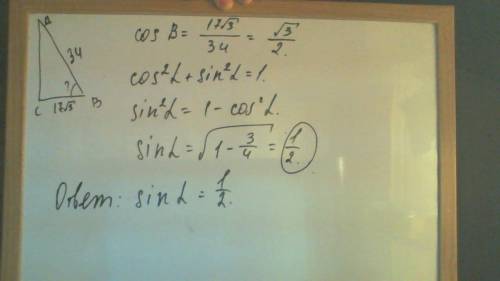 A
34
?
C 17√3 B
cos B = 17√3/34 = √3/2.
cos²L + sin²L = 1.
sin²L = 1 - cos²L.
sin L = √(1 - 3/4) = 1/2.
Ответ: sin L = 1/2.